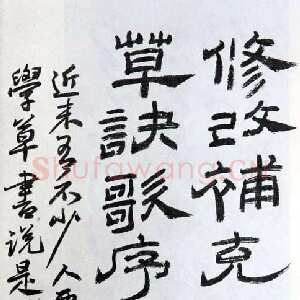 修改補充
草訣歌序
近来有不少人要
學草書説是
Shufawang.cn